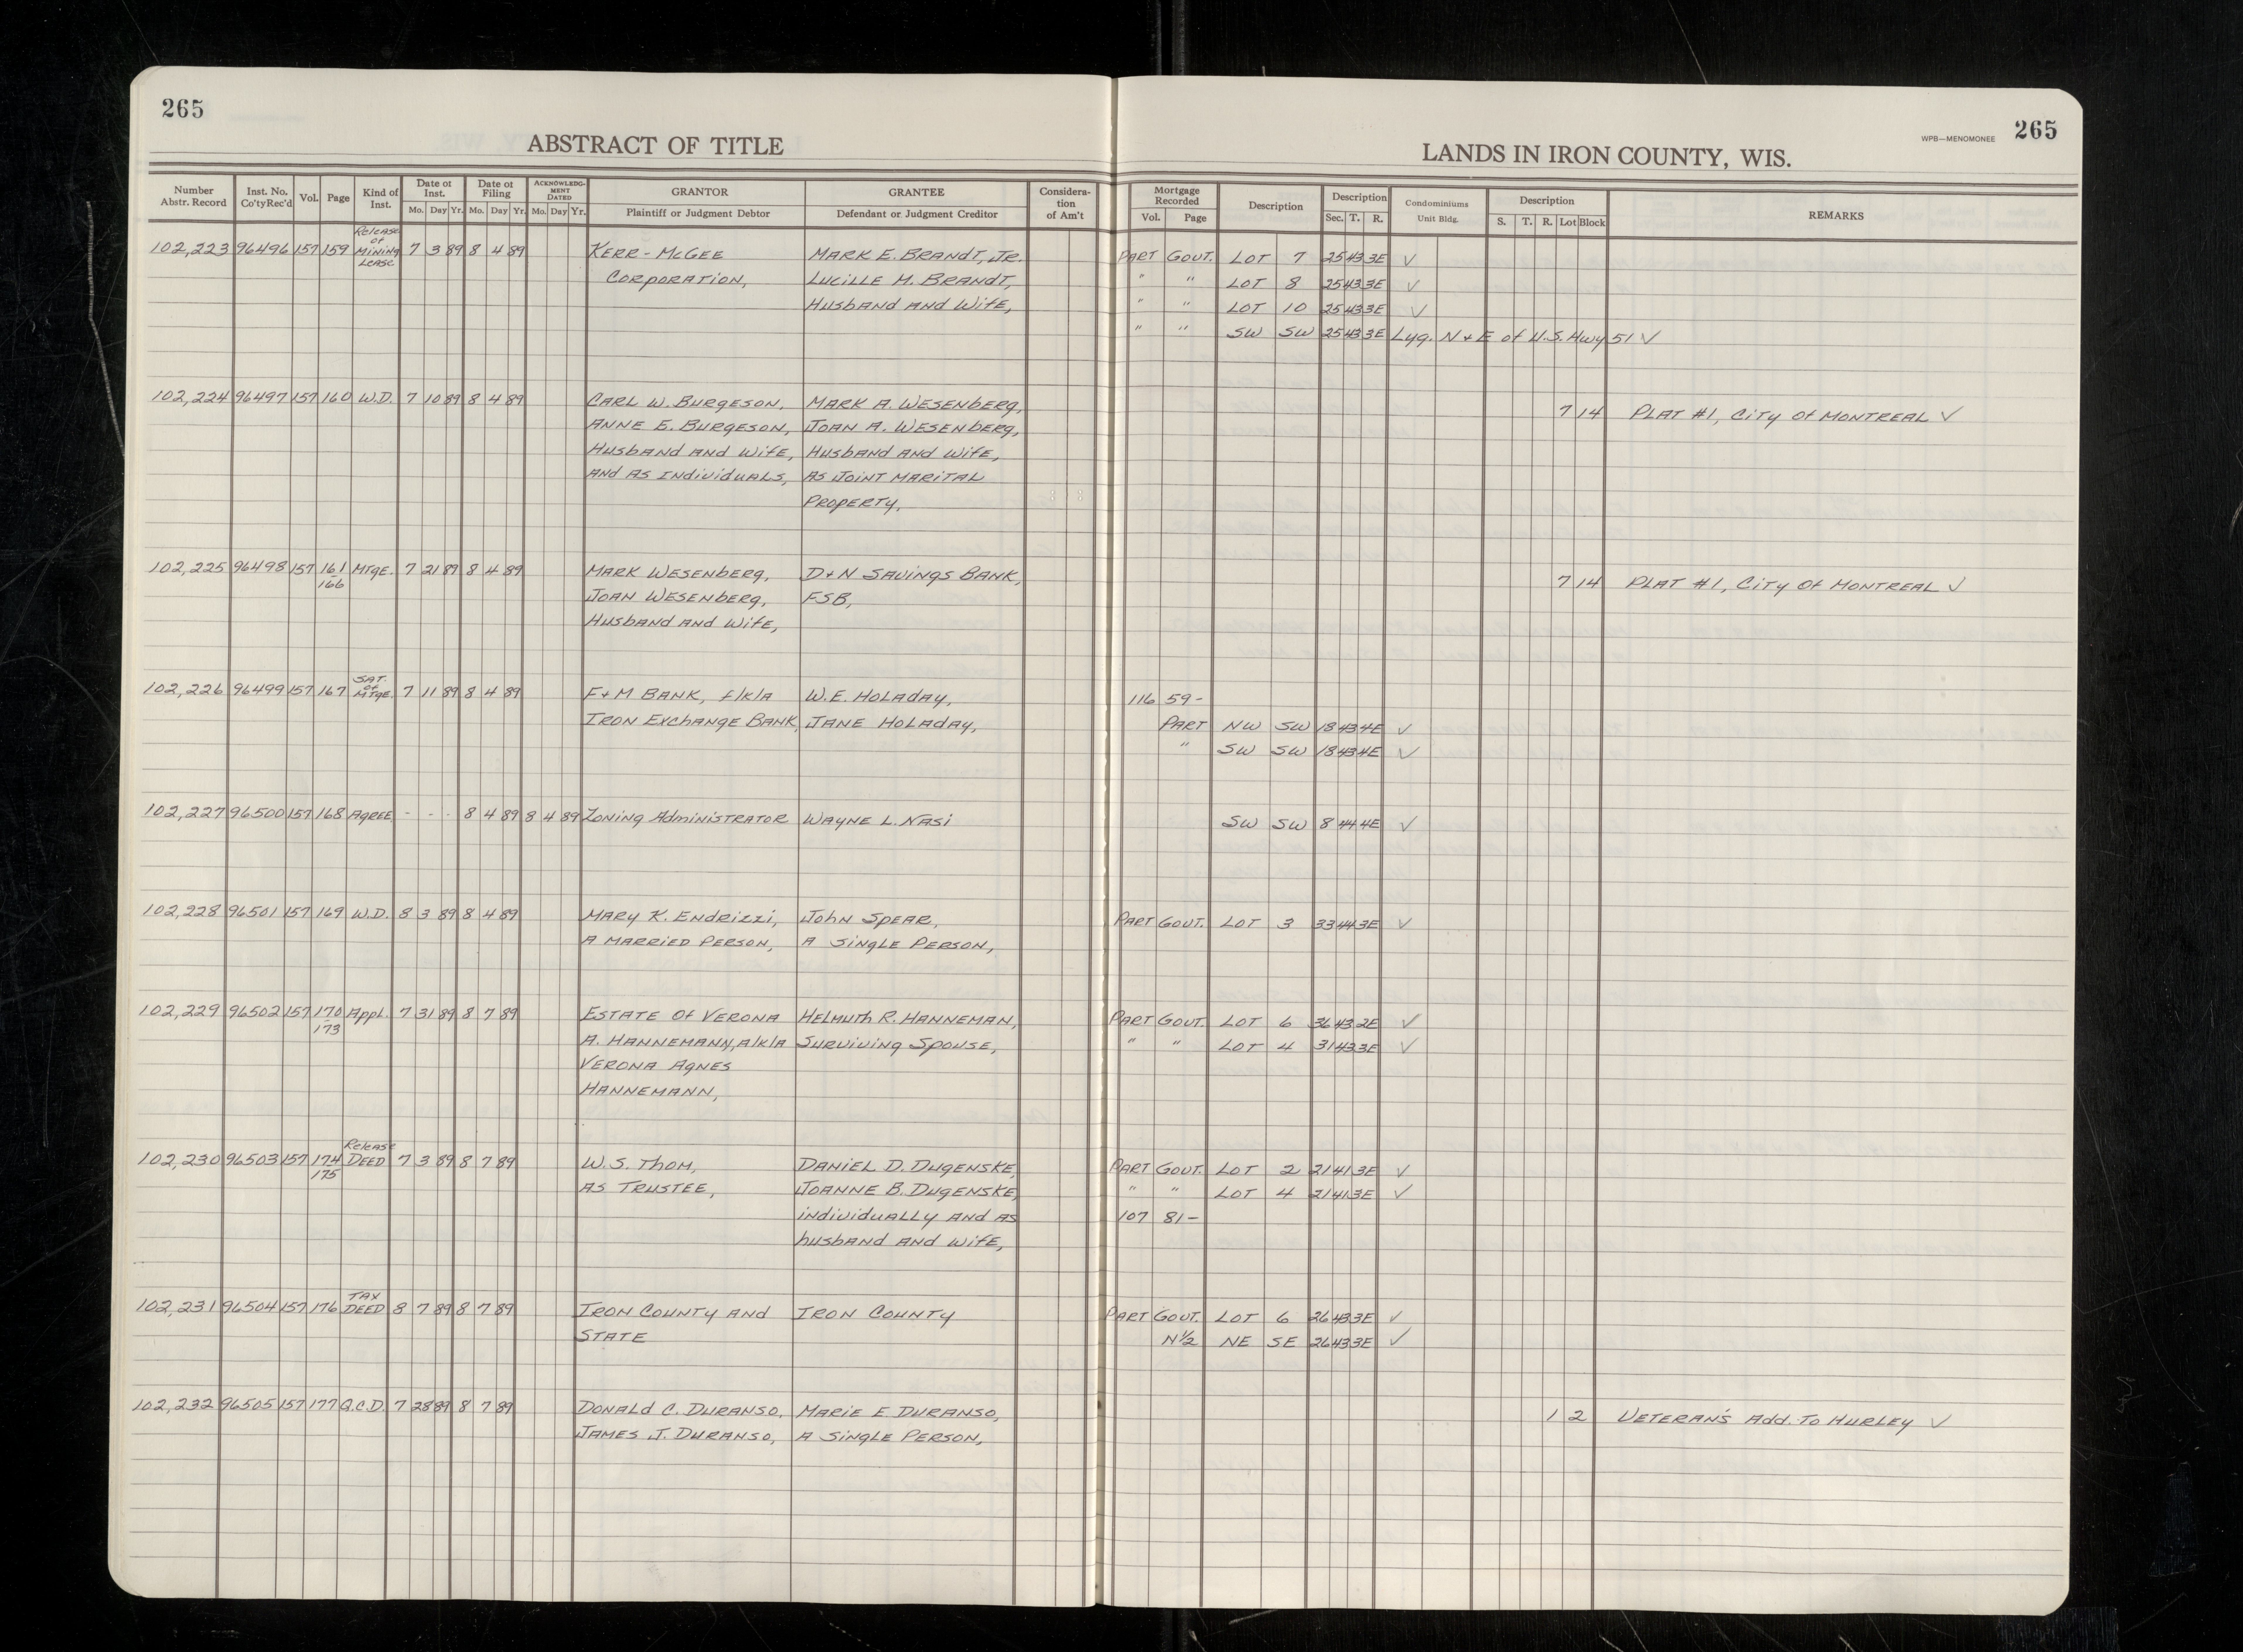 265
ABSTRACT OF TITLE
LANDS IN IRON COUNTY, WIS.
WPB—MENOMONEE
265
Number Abstr. Record
Inst. No. Co'ty Rec'd
Vol.
Page
Kind of Inst.
Date of Inst.
Mo. Day Yr.
Date of Filing
Mo. Day Yr.
ACKNOWLEDGMENT DATED
Mo. Day Yr.
GRANTOR
Plaintiff or Judgment Debtor
GRANTEE
Defendant or Judgment Creditor
Consideration of Am't
Mortgage Recorded
Vol. Page
Description
Description
Sec. T. R.
Condominiums
Unit Bldg.
Description
S. T. R. Lot Block
REMARKS
Release
of
102,223 96496 157 159 Mining 7 3 89 8 4 89 Kerr-McGee Mark E. Brandt, Jr. Part Gout. Lot 7 25 43 3E ✓
Lease
Corporation, Lucille M. Brandt, " " Lot 8 25 43 3E ✓
Husband and Wife, " " Lot 10 25 43 3E ✓
" " SW SW 25 43 3E Lyg. N + E of U.S. Hwy 51 ✓
102,224 96497 157 160 W.D. 7 10 89 8 4 89 Carl W. Burgeson, Mark A. Wesenberg, 7 14 Plat #1, City of Montreal ✓
Anne E. Burgeson, Joan A. Wesenberg,
Husband and Wife, Husband and Wife,
and as Individuals, as Joint Marital
Property,
102,225 96498 157 161 Mtge. 7 21 89 8 4 89 Mark Wesenberg, D+N Savings Bank, 7 14 Plat #1, City of Montreal ✓
166 Joan Wesenberg, FSB,
Husband and Wife,
Sat.
of
102,226 96499 157 167 Mtge. 7 11 89 8 4 89 F+M Bank, f/k/a W.E. Holaday, 116 59-
Iron Exchange Bank, Jane Holaday, Part NW SW 18 43 4E ✓
" SW SW 18 43 4E ✓
102,227 96500 157 168 Agree - - - 8 4 89 8 4 89 Zoning Administrator Wayne L. Nasi SW SW 8 44 4E ✓
102,228 96501 157 169 W.D. 8 3 89 8 4 89 Mary K. Endrizzi, John Spear, Part Gout. Lot 3 33 44 3E ✓
a Married Person, a Single Person,
102,229 96502 157 170 Appl. 7 31 89 8 7 89 Estate of Verona Helmuth R. Hanneman, Part Gout. Lot 6 36 43 2E ✓
173 A. Hannemann, a/k/a Surviving Spouse, " " Lot 4 31 43 3E ✓
Verona Agnes
Hannemann,
Release
102,230 96503 157 174 Deed 7 3 89 8 7 89 W.S. Thom, Daniel D. Dugenske, Part Gout. Lot 2 21 41 3E ✓
175 as Trustee, Joanne B. Dugenske, " " Lot 4 21 41 3E ✓
individually and as 107 81-
husband and wife,
Tax
102,231 96504 157 176 Deed 8 7 89 8 7 89 Iron County and Iron County Part Gout. Lot 6 26 43 3E ✓
State N½ NE SE 26 43 3E ✓
102,232 96505 157 177 Q.C.D. 7 28 89 8 7 89 Donald C. Duranso, Marie E Duranso, 1 2 Veteran's Add. To Hurley ✓
James J. Duranso, a Single Person,